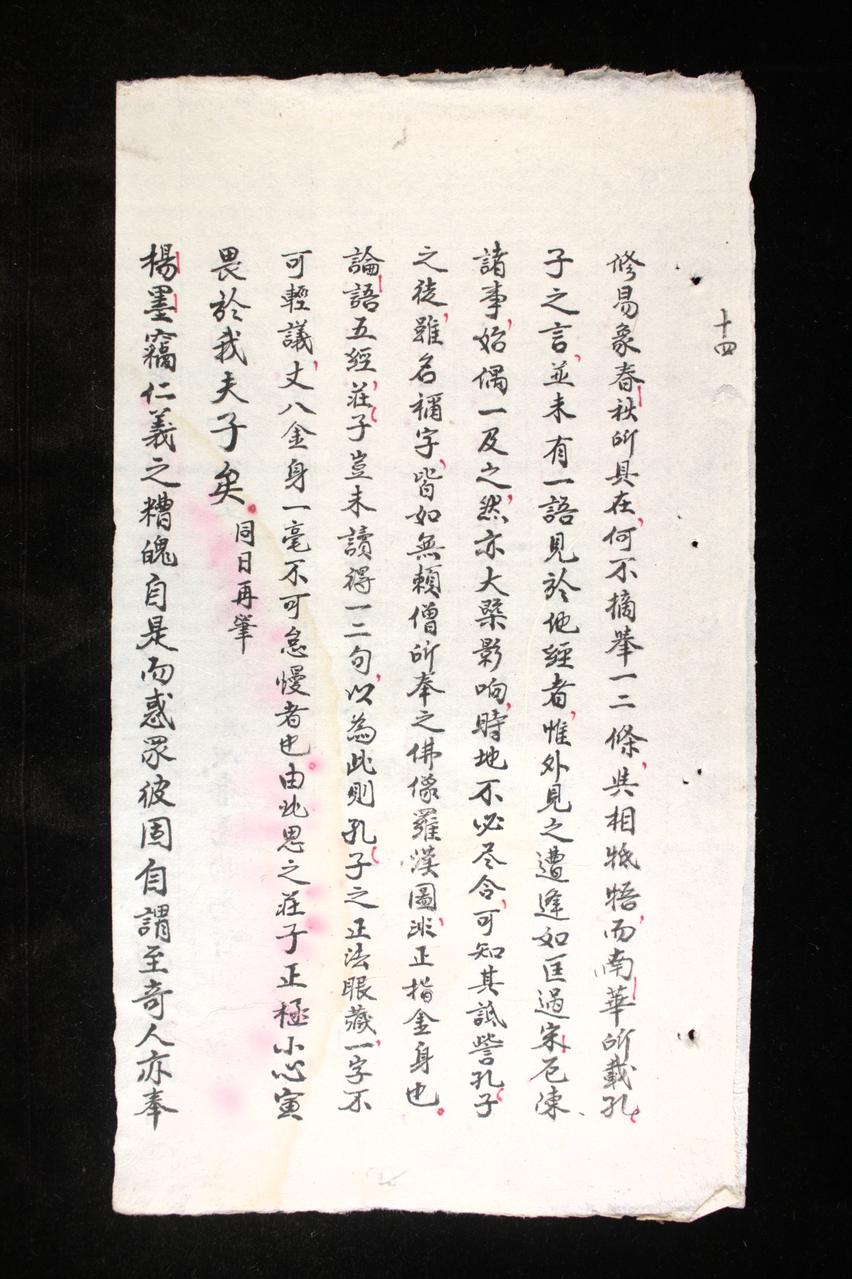 十四
修易象春秋所具在何不摘舉一二條與相牴牾而南華所載孔
子之言並未有一語見於他經者惟外見之遭逢如匡過宋厄陳
諸事始偶一及之然亦大槩影响時地不必尽合可知其詆訾孔子
之徒雖名稱字皆如無賴僧所奉之佛像羅漢圖非正指金身也
論語五經莊子豈未讀得一二句以為此則孔子之正法眼藏一字不
可輕議丈八金身一毫不可怠慢者也由此思之莊子正極小心寅
畏於我夫子矣 同日再肇
楊墨竊仁義之糟魄自是而惑眾彼固自謂至奇人亦奉